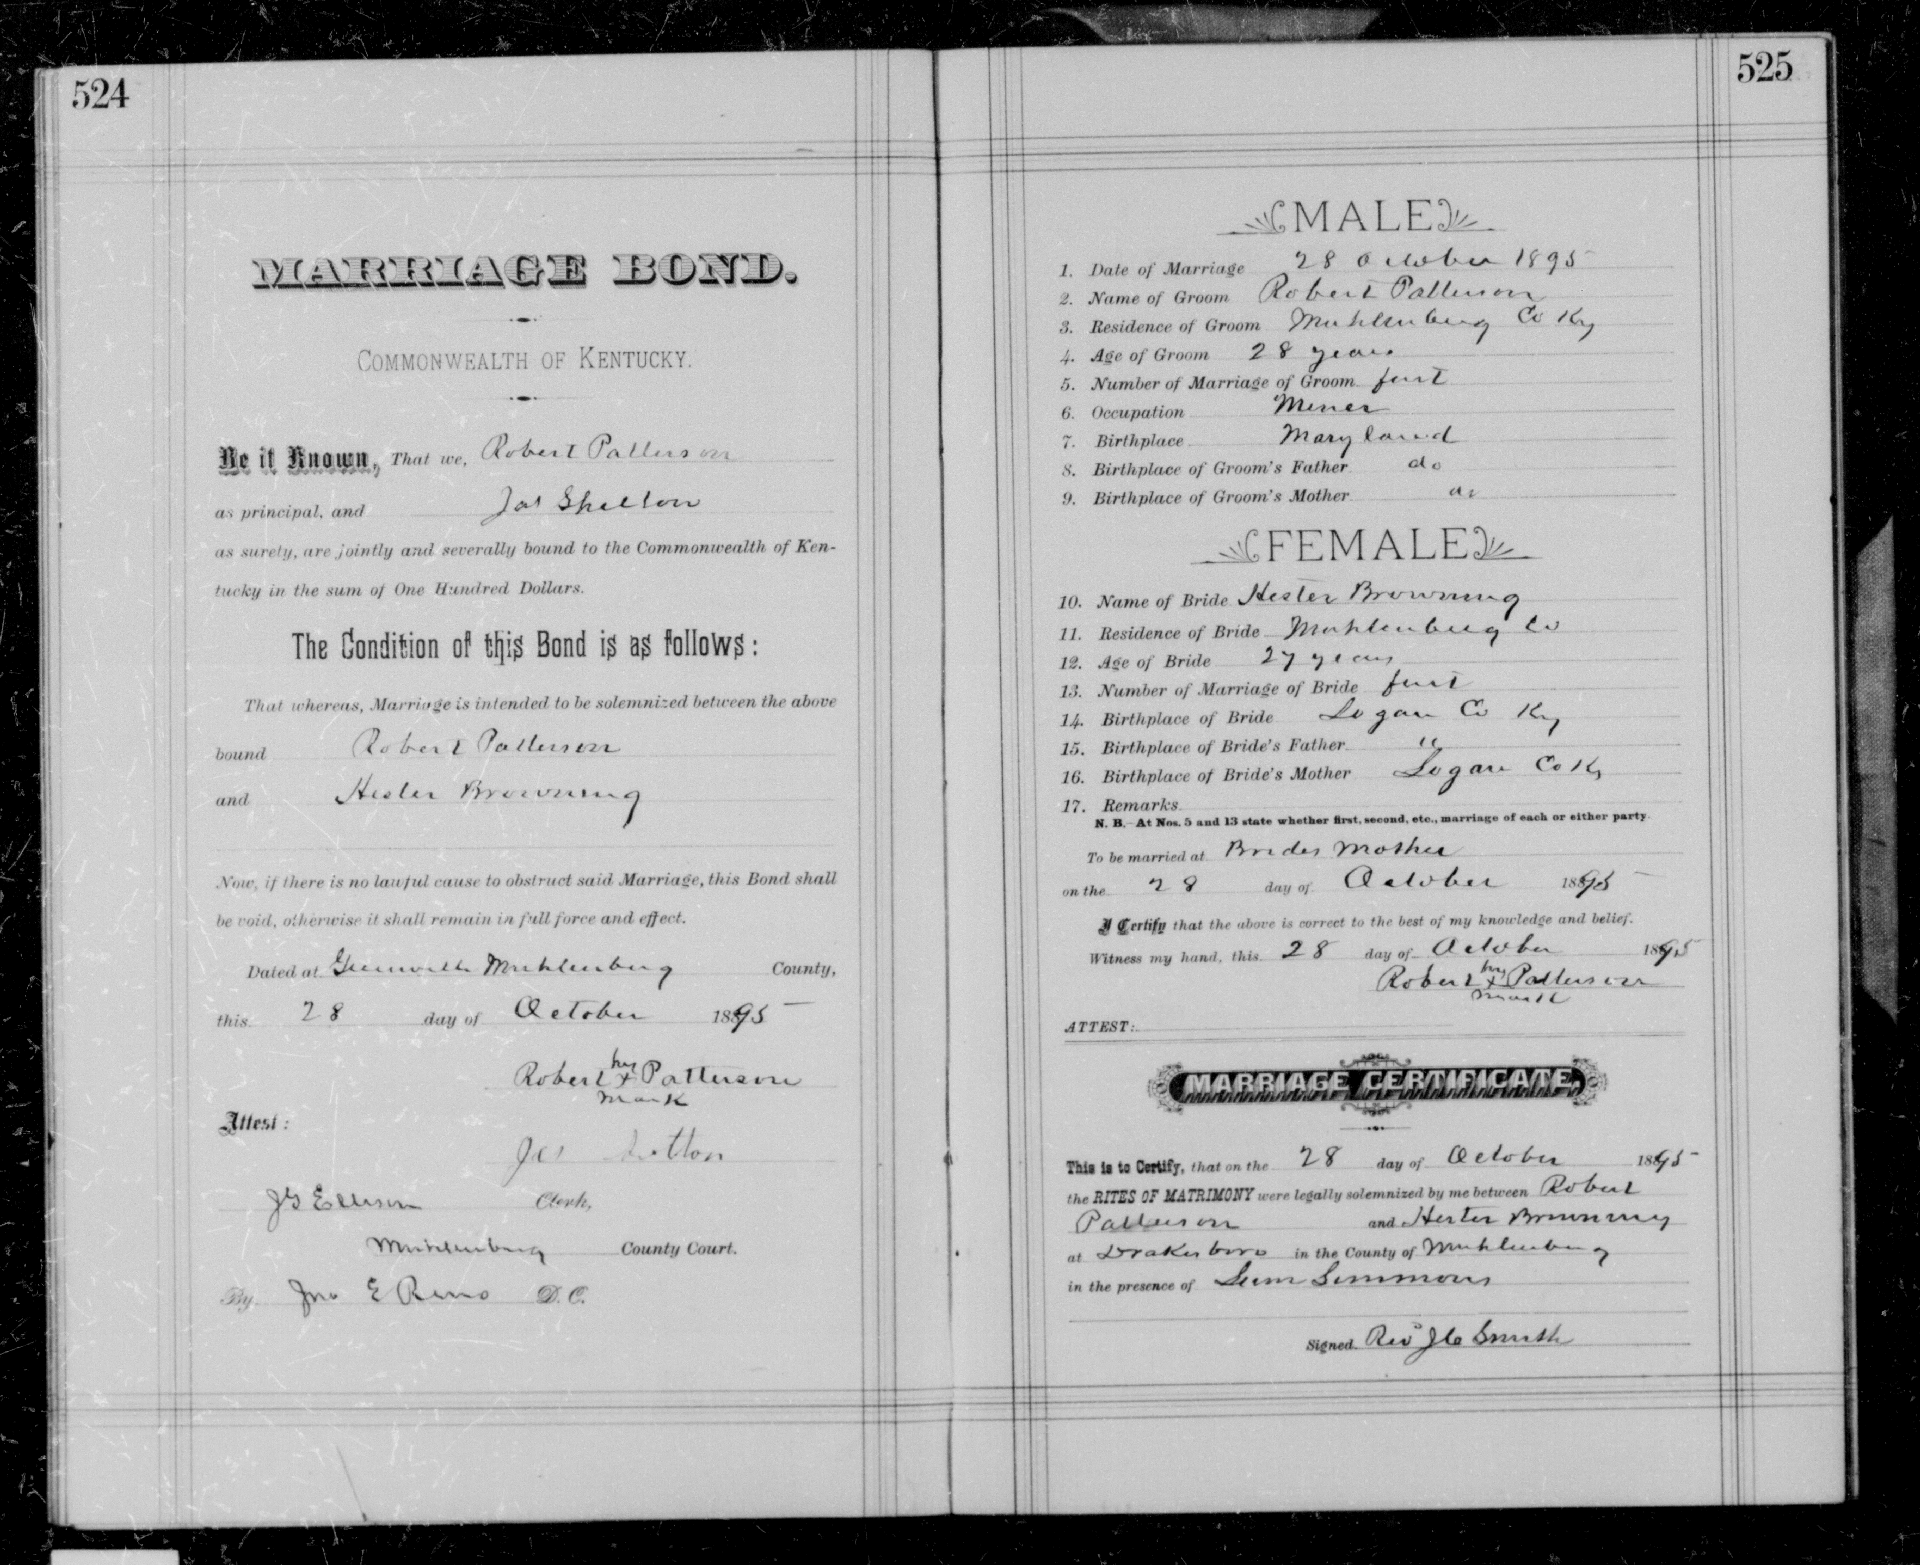 524
MARRIAGE BOND.
COMMONWEALTH OF KENTUCKY.
Be it Known, That we, Robert Patterson
as principal, and Jas Shelton
as surety, are jointly and severally bound to the Commonwealth of Ken-
tucky in the sum of One Hundred Dollars.
The Condition of this Bond is as follows:
That whereas, Marriage is intended to be solemnized between the above
bound Robert Patterson
and Hester Browning
Now, if there is no lawful cause to obstruct said Marriage, this Bond shall
be void, otherwise it shall remain in full force and effect.
Dated at Greenville Muhlenburg County,
this 28 day of October 1895
Robert his x mark Patterson
Attest:
Jas
Clerk,
Muhlenburg County Court.
By Jno E Reno D. C.
525
MALE
1. Date of Marriage 28 October 1895
2. Name of Groom Robert Patterson
3. Residence of Groom Muhlenburg Co Ky
4. Age of Groom 28 years
5. Number of Marriage of Groom first
6. Occupation Miner
7. Birthplace Maryland
8. Birthplace of Groom's Father do
9. Birthplace of Groom's Mother do
FEMALE
10. Name of Bride Hester Browning
11. Residence of Bride Muhlenburg Co
12. Age of Bride 27 years
13. Number of Marriage of Bride first
14. Birthplace of Bride Logan Co Ky
15. Birthplace of Bride's Father "
16. Birthplace of Bride's Mother Logan Co Ky
17. Remarks
N. B.—At Nos. 5 and 13 state whether first, second, etc., marriage of each or either party.
To be married at Brides Mother
on the 28 day of October 1895
I Certify that the above is correct to the best of my knowledge and belief.
Witness my hand, this 28 day of October 1895
Robert his x mark Patterson
ATTEST:
MARRIAGE CERTIFICATE.
This is to Certify, that on the 28 day of October 1895
the RITES OF MATRIMONY were legally solemnized by me between Robert
Patterson and Hester Browning
at Drakesboro in the County of Muhlenburg
in the presence of Simmons
Signed Rev Smith